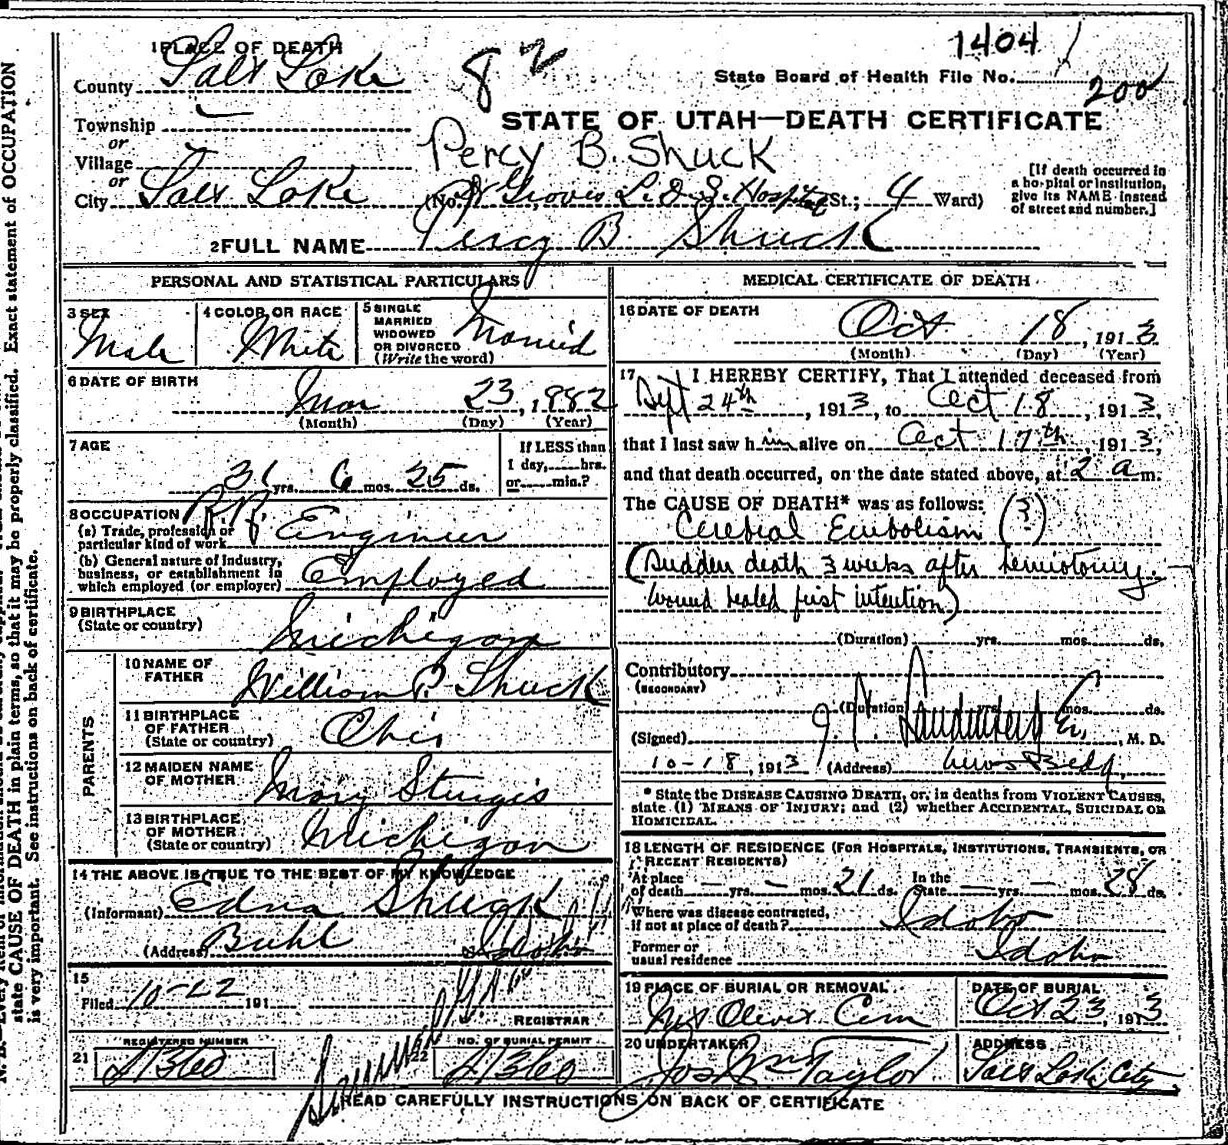 1404
82
200
1 PLACE OF DEATH
County Salt Lake
State Board of Health File No.
Township
or
STATE OF UTAH—DEATH CERTIFICATE
Village
or
Percy B. Shuck
City Salt Lake (No. Groves L.D.S. Hospital St.; 4 Ward)
[If death occurred in a hospital or institution, give its NAME instead of street and number.]
2 FULL NAME Percy B. Shuck
PERSONAL AND STATISTICAL PARTICULARS
3 SEX Male
4 COLOR OR RACE White
5 SINGLE MARRIED WIDOWED OR DIVORCED (Write the word) Married
6 DATE OF BIRTH Mar 23, 1882
(Month) (Day) (Year)
7 AGE 31 yrs. 6 mos. 25 ds.
If LESS than 1 day, hrs. or min.?
8 OCCUPATION
(a) Trade, profession or particular kind of work R.R. Engineer
(b) General nature of Industry, business, or establishment in which employed (or employer) Employed
9 BIRTHPLACE (State or country) Michigan
PARENTS
10 NAME OF FATHER William P. Shuck
11 BIRTHPLACE OF FATHER (State or country) Ohio
12 MAIDEN NAME OF MOTHER Mary Sturgis
13 BIRTHPLACE OF MOTHER (State or country) Michigan
14 THE ABOVE IS TRUE TO THE BEST OF MY KNOWLEDGE
(Informant) Edna Shuck
(Address) Buhl Idaho
15
Filed 10-22 191
REGISTRAR
21 REGISTERED NUMBER
22 NO. OF BURIAL PERMIT
MEDICAL CERTIFICATE OF DEATH
16 DATE OF DEATH
Oct 18, 1913
(Month) (Day) (Year)
17 I HEREBY CERTIFY, That I attended deceased from
Sept 24th, 1913, to Oct 18, 1913,
that I last saw him alive on Oct 17th, 1913,
and that death occurred, on the date stated above, at 2 a m.
The CAUSE OF DEATH* was as follows:
Cerebral Embolism (?)
(Sudden death 3 weeks after herniotomy.
wound healed first intention)
(Duration) yrs. mos. ds.
Contributory
(SECONDARY)
(Duration) yrs. mos. ds.
(Signed) M. D.
10-18, 1913 (Address)
* State the DISEASE CAUSING DEATH, or, in deaths from VIOLENT CAUSES, state (1) MEANS OF INJURY; and (2) whether ACCIDENTAL, SUICIDAL OR HOMICIDAL.
18 LENGTH OF RESIDENCE (FOR HOSPITALS, INSTITUTIONS, TRANSIENTS, OR RECENT RESIDENTS)
At place of death — yrs. — mos. 21 ds. In the State — yrs. — mos. 28 ds.
Where was disease contracted, if not at place of death? Idaho
Former or usual residence Idaho
19 PLACE OF BURIAL OR REMOVAL Mt Olivet Cem
DATE OF BURIAL Oct 23, 1913
20 UNDERTAKER Jos Wm Taylor
ADDRESS Salt Lake City
READ CAREFULLY INSTRUCTIONS ON BACK OF CERTIFICATE
state CAUSE OF DEATH in plain terms, so that it may be properly classified. Exact statement of OCCUPATION
is very important. See instructions on back of certificate.